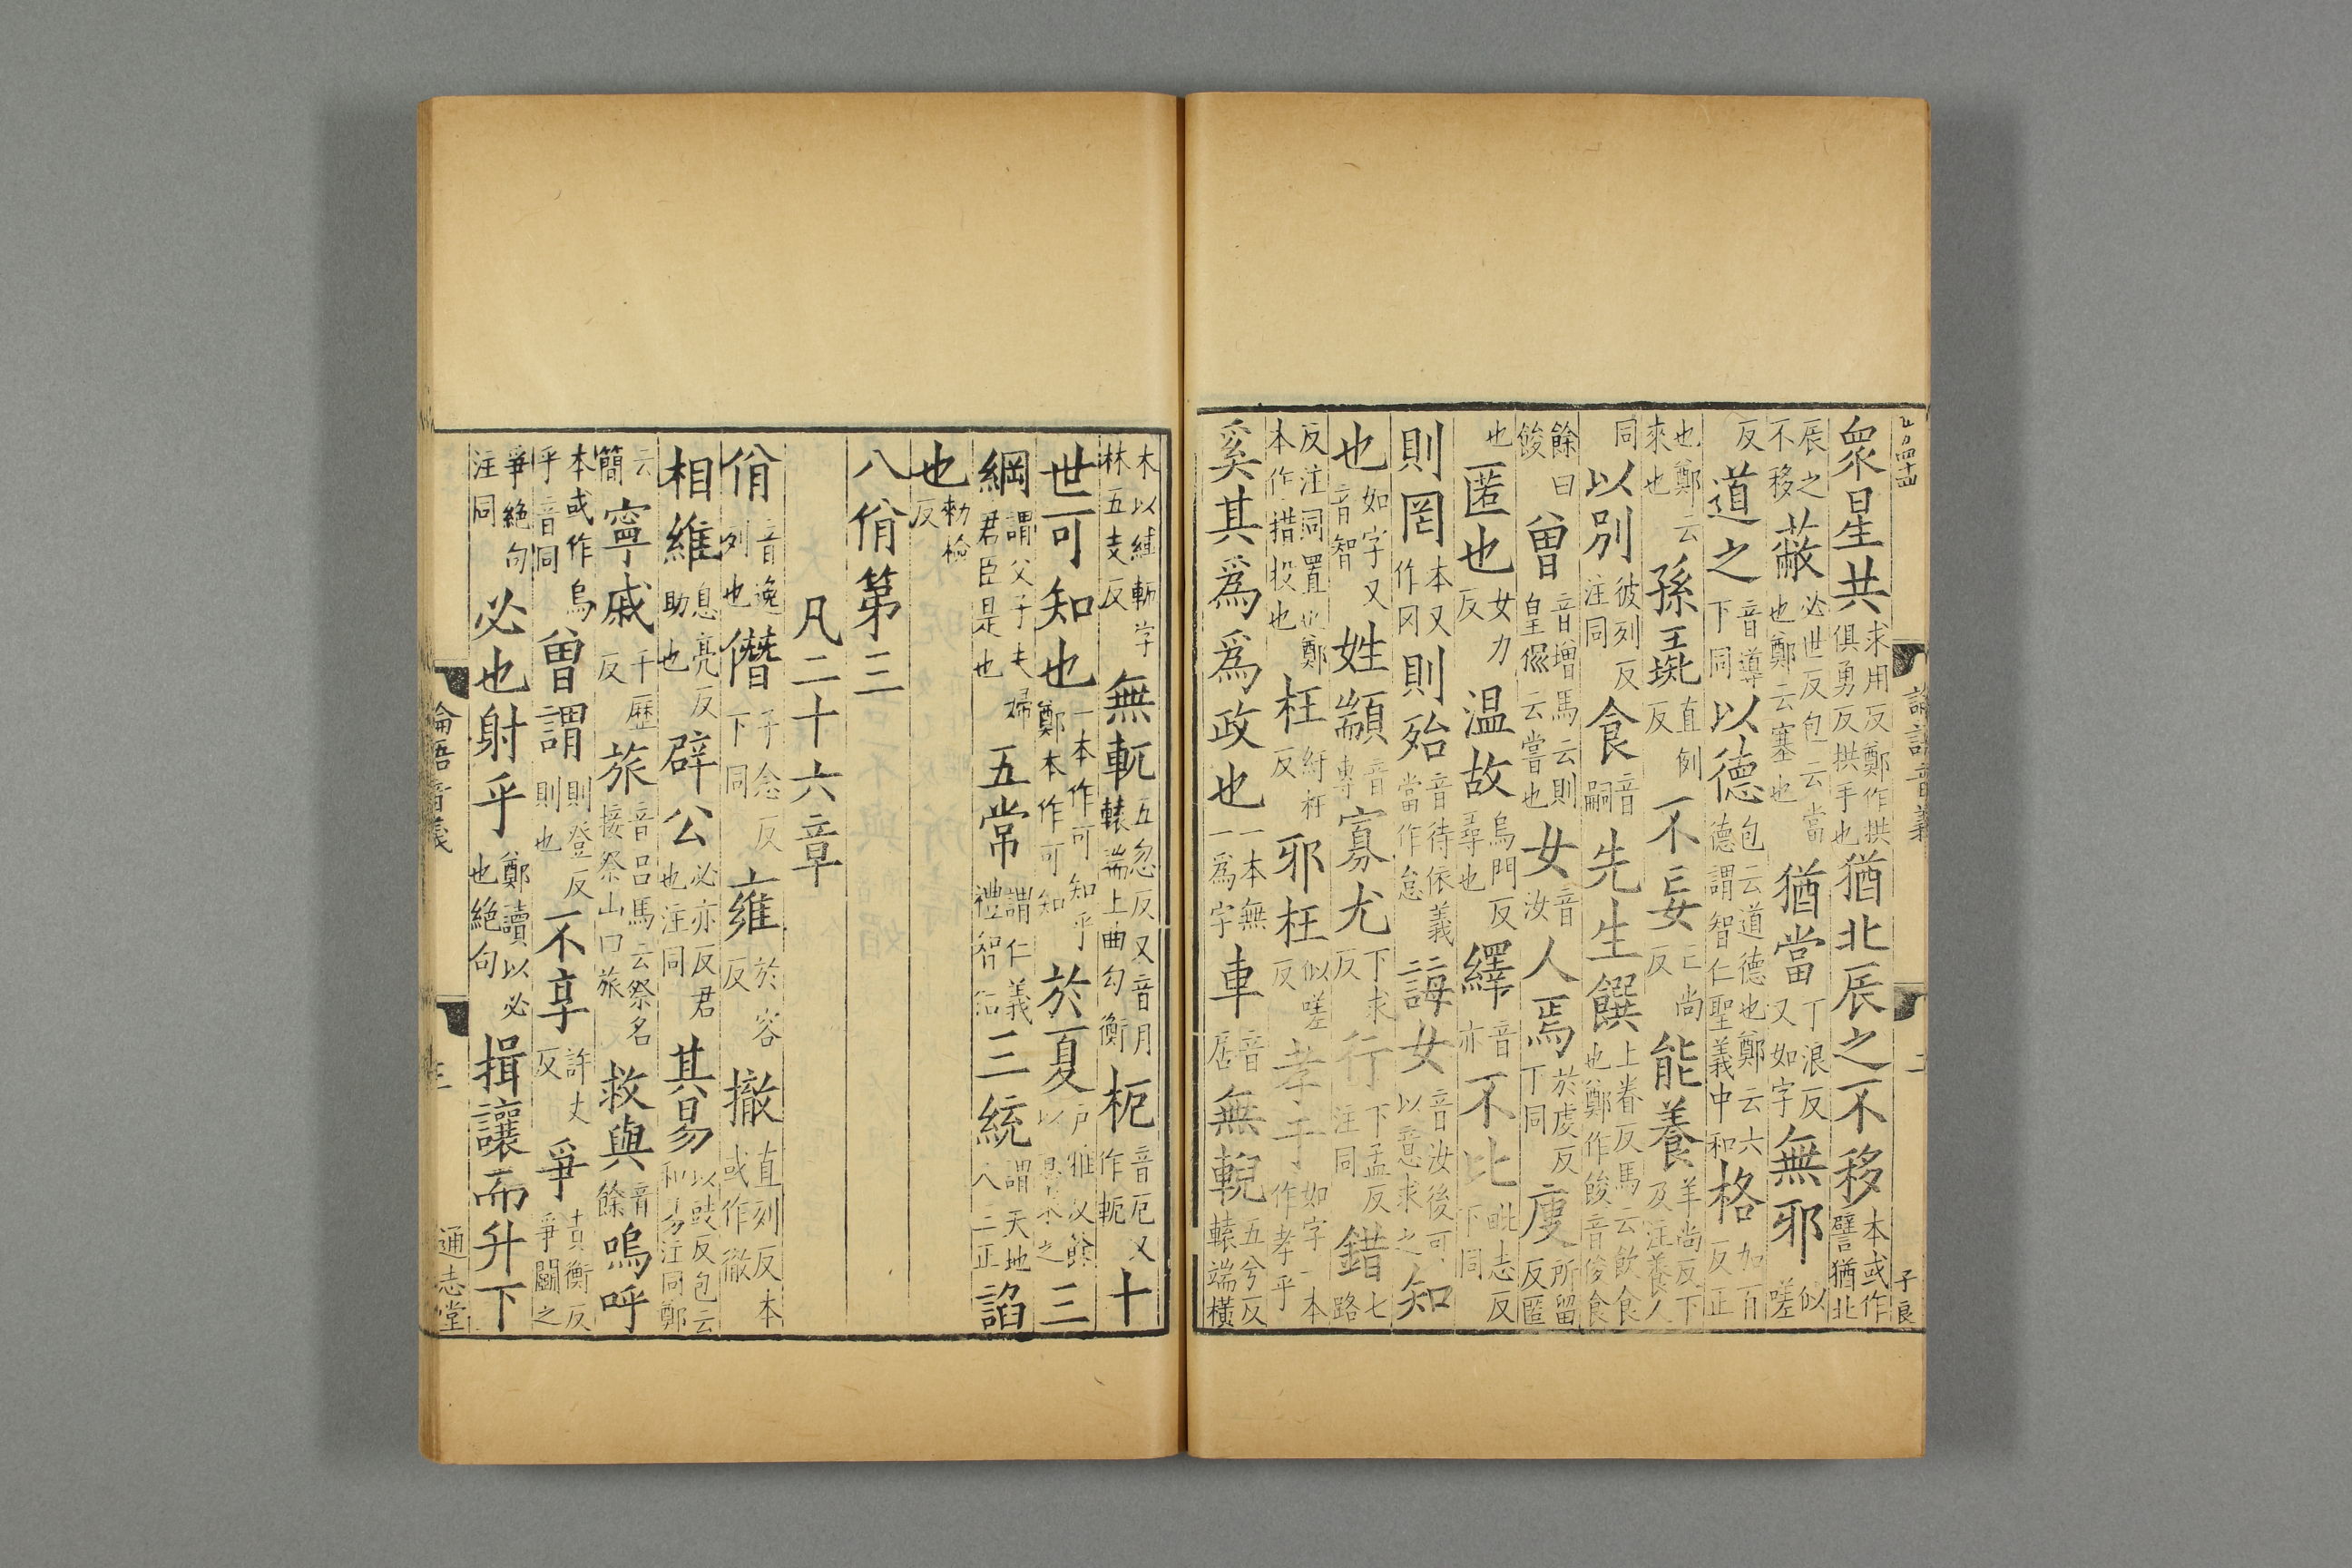 衆星共求用反鄭作拱俱勇反拱手也猶北辰之不移本或作譬猶北
辰之不移蔽必世反包云當也鄭云塞也猶當丁浪反又如字無邪似嗟
反道之音導下同以德包云道德也鄭云六德謂智仁聖義中和格加百反正
也鄭云來也孫王彘直例反不妄亡尚反能養羊尚反下及注養人
同以別彼列反注同食音嗣先生饌上眷反馬云飲食也鄭作餕音俊食
餘曰餕曾音增馬云則皇侃云嘗也女音汝人焉於虔反丁同廋所留反匿
也匿也女力反温故烏門反尋也繹音亦不比毗志反下同
則罔本又作冈則殆音待依義當作怠誨女音汝後可以意求之知
也如字又音智姓顓音專寡尤下求反行下孟反注同錯七路
反注同置也鄭本作措投也枉紆枉反邪枉似嗟反孝于如字一本作孝乎
奚其爲爲政也一本無一爲字車音居無輗五兮反轅端橫
論語音義
二
子良
木以縛軛字林五支反無軏五忽反又音月轅端上曲勾衡枙音厄又作軛十
世可知也一本作可知乎鄭本作可知於夏戶雅反餘以意求之三
綱謂父子夫婦君臣是也五常謂仁義禮智信三統謂天地人三正諂
也勑檢反
八佾第三
凡二十六章
佾音逸列也僭子念反下同雍於容反撤直列反本或作徹
相維息亮反助也辟公必亦反君也注同其易以豉反包云和易注同鄭
云簡寧戚千歷反旅音呂馬云祭名接祭山曰旅救與音餘嗚呼
本或作烏乎音同曾謂則登反則也不享許丈反爭責衡反爭鬭之
爭絶句注同必也射乎鄭讀以必也絶句揖讓而升下
論語音義
三
通志堂